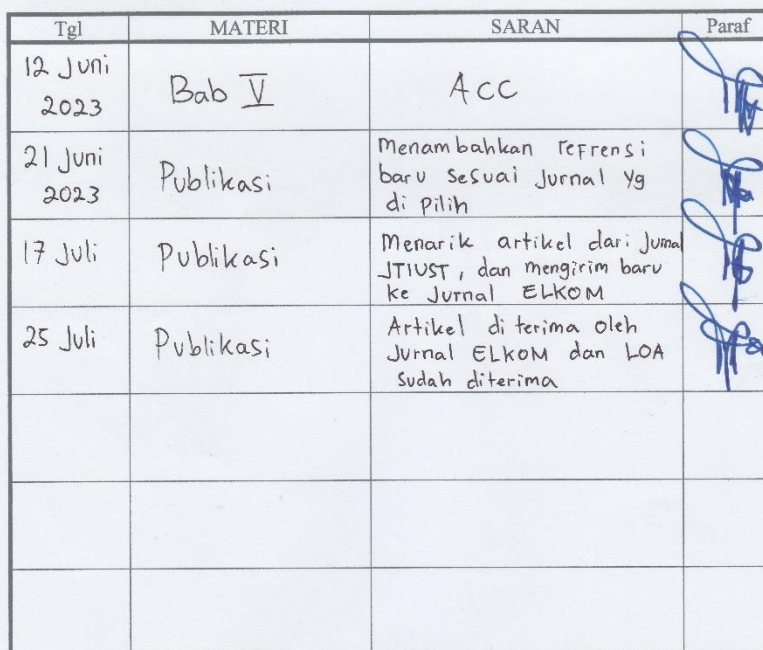 Tgl MATERI SARAN Paraf
12 Juni
2023
Bab V
ACC
21 Juni
2023
Publikasi
Menambahkan refrensi
baru sesuai Jurnal yg
di pilih
17 Juli
Publikasi
Menarik artikel dari Jurnal
JTIUST, dan mengirim baru
ke Jurnal ELKOM
25 Juli
Publikasi
Artikel di terima oleh
Jurnal ELKOM dan LOA
sudah diterima